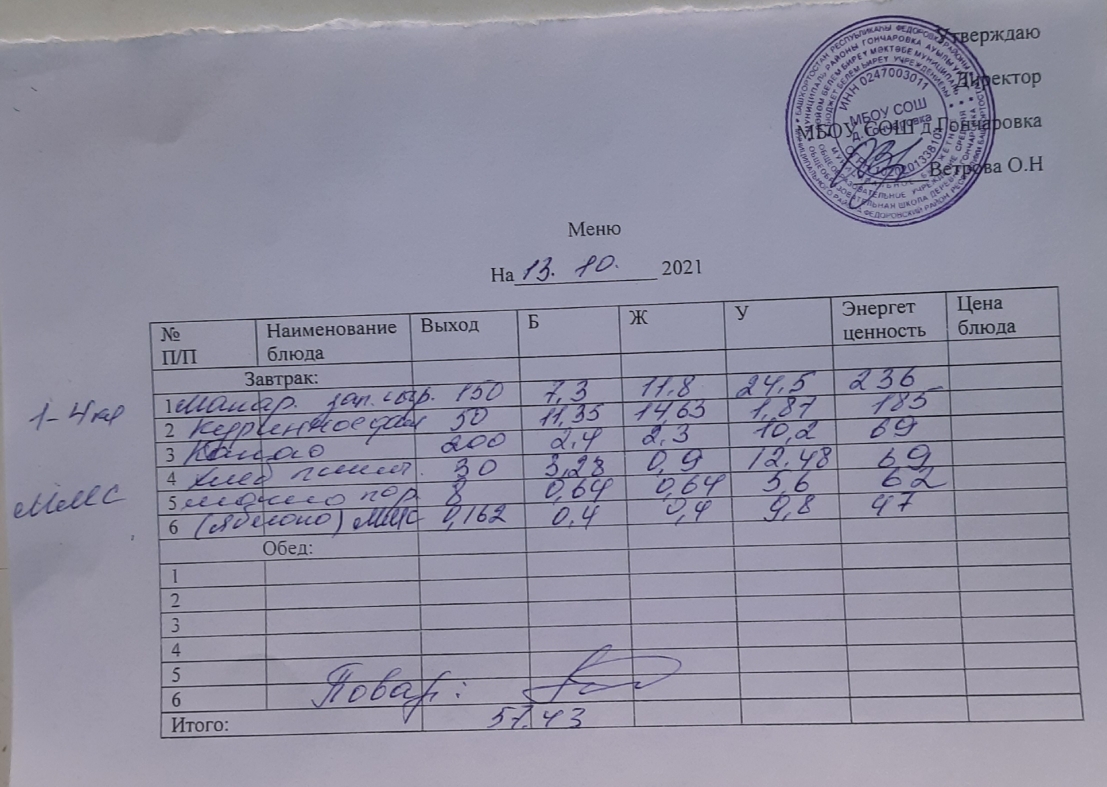 Утверждаю
Директор
МБОУ СОШ д.Гончаровка
Ветрова О.Н
ИНН 0247003011
МБОУ СОШ
д. Гончаровка
Меню
На 13. 10. 2021
№ П/П Наименование блюда Выход Б Ж У Энергет ценность Цена блюда
Завтрак:
1 Макар. зап. сыр. 150 7,3 11,8 24,5 236
1-4 кл
2 50 11,35 14,63 1,87 185
3 Какао 200 2,4 2,3 10,2 69
4 Хлеб 30 3,28 0,9 12,48 69
ММС
5 масло пор. 8 0,64 0,64 5,6 62
6 (яблоко) ММС 0,162 0,4 0,4 9,8 47
Обед:
1
2
3
4
5
6
Повар:
Итого: 57.43